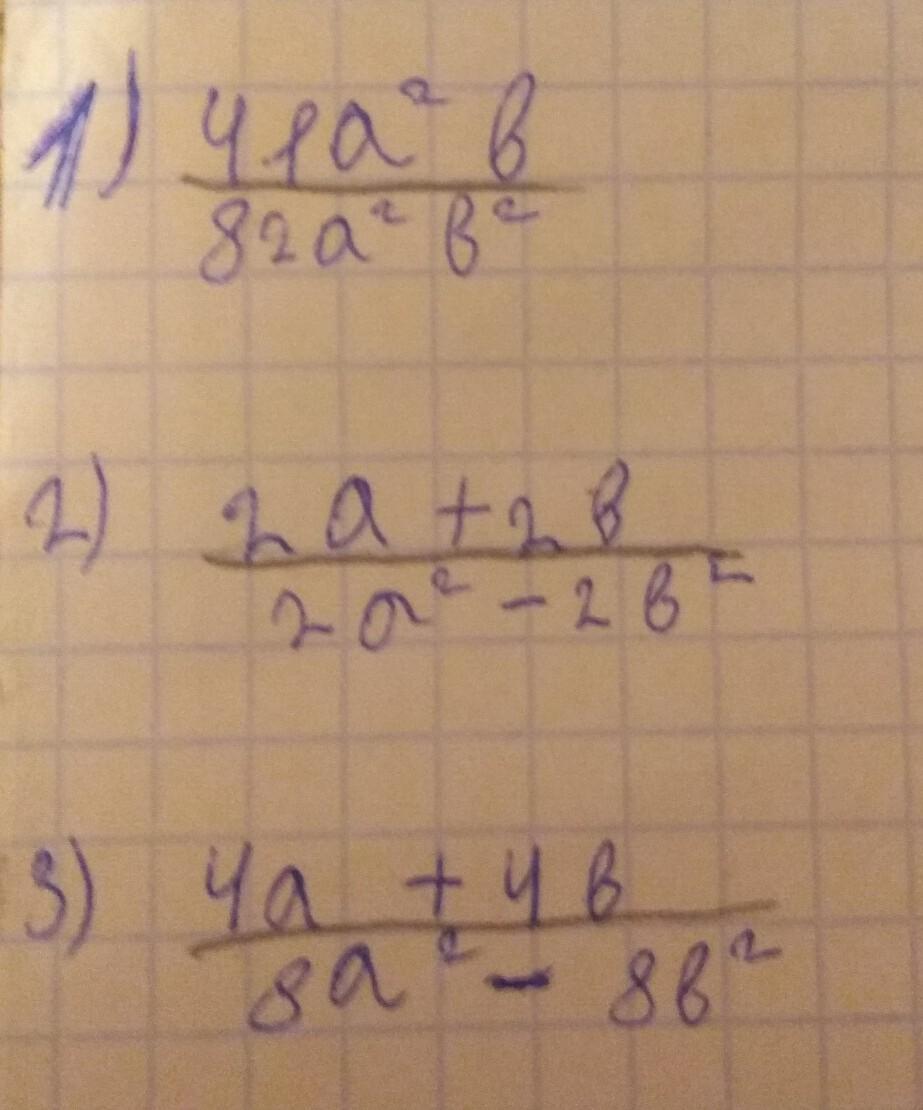 1) 41a² b
82a² b²
2) 2a + 2b
2a² - 2b²
3) 4a + 4b
8a² - 8b²